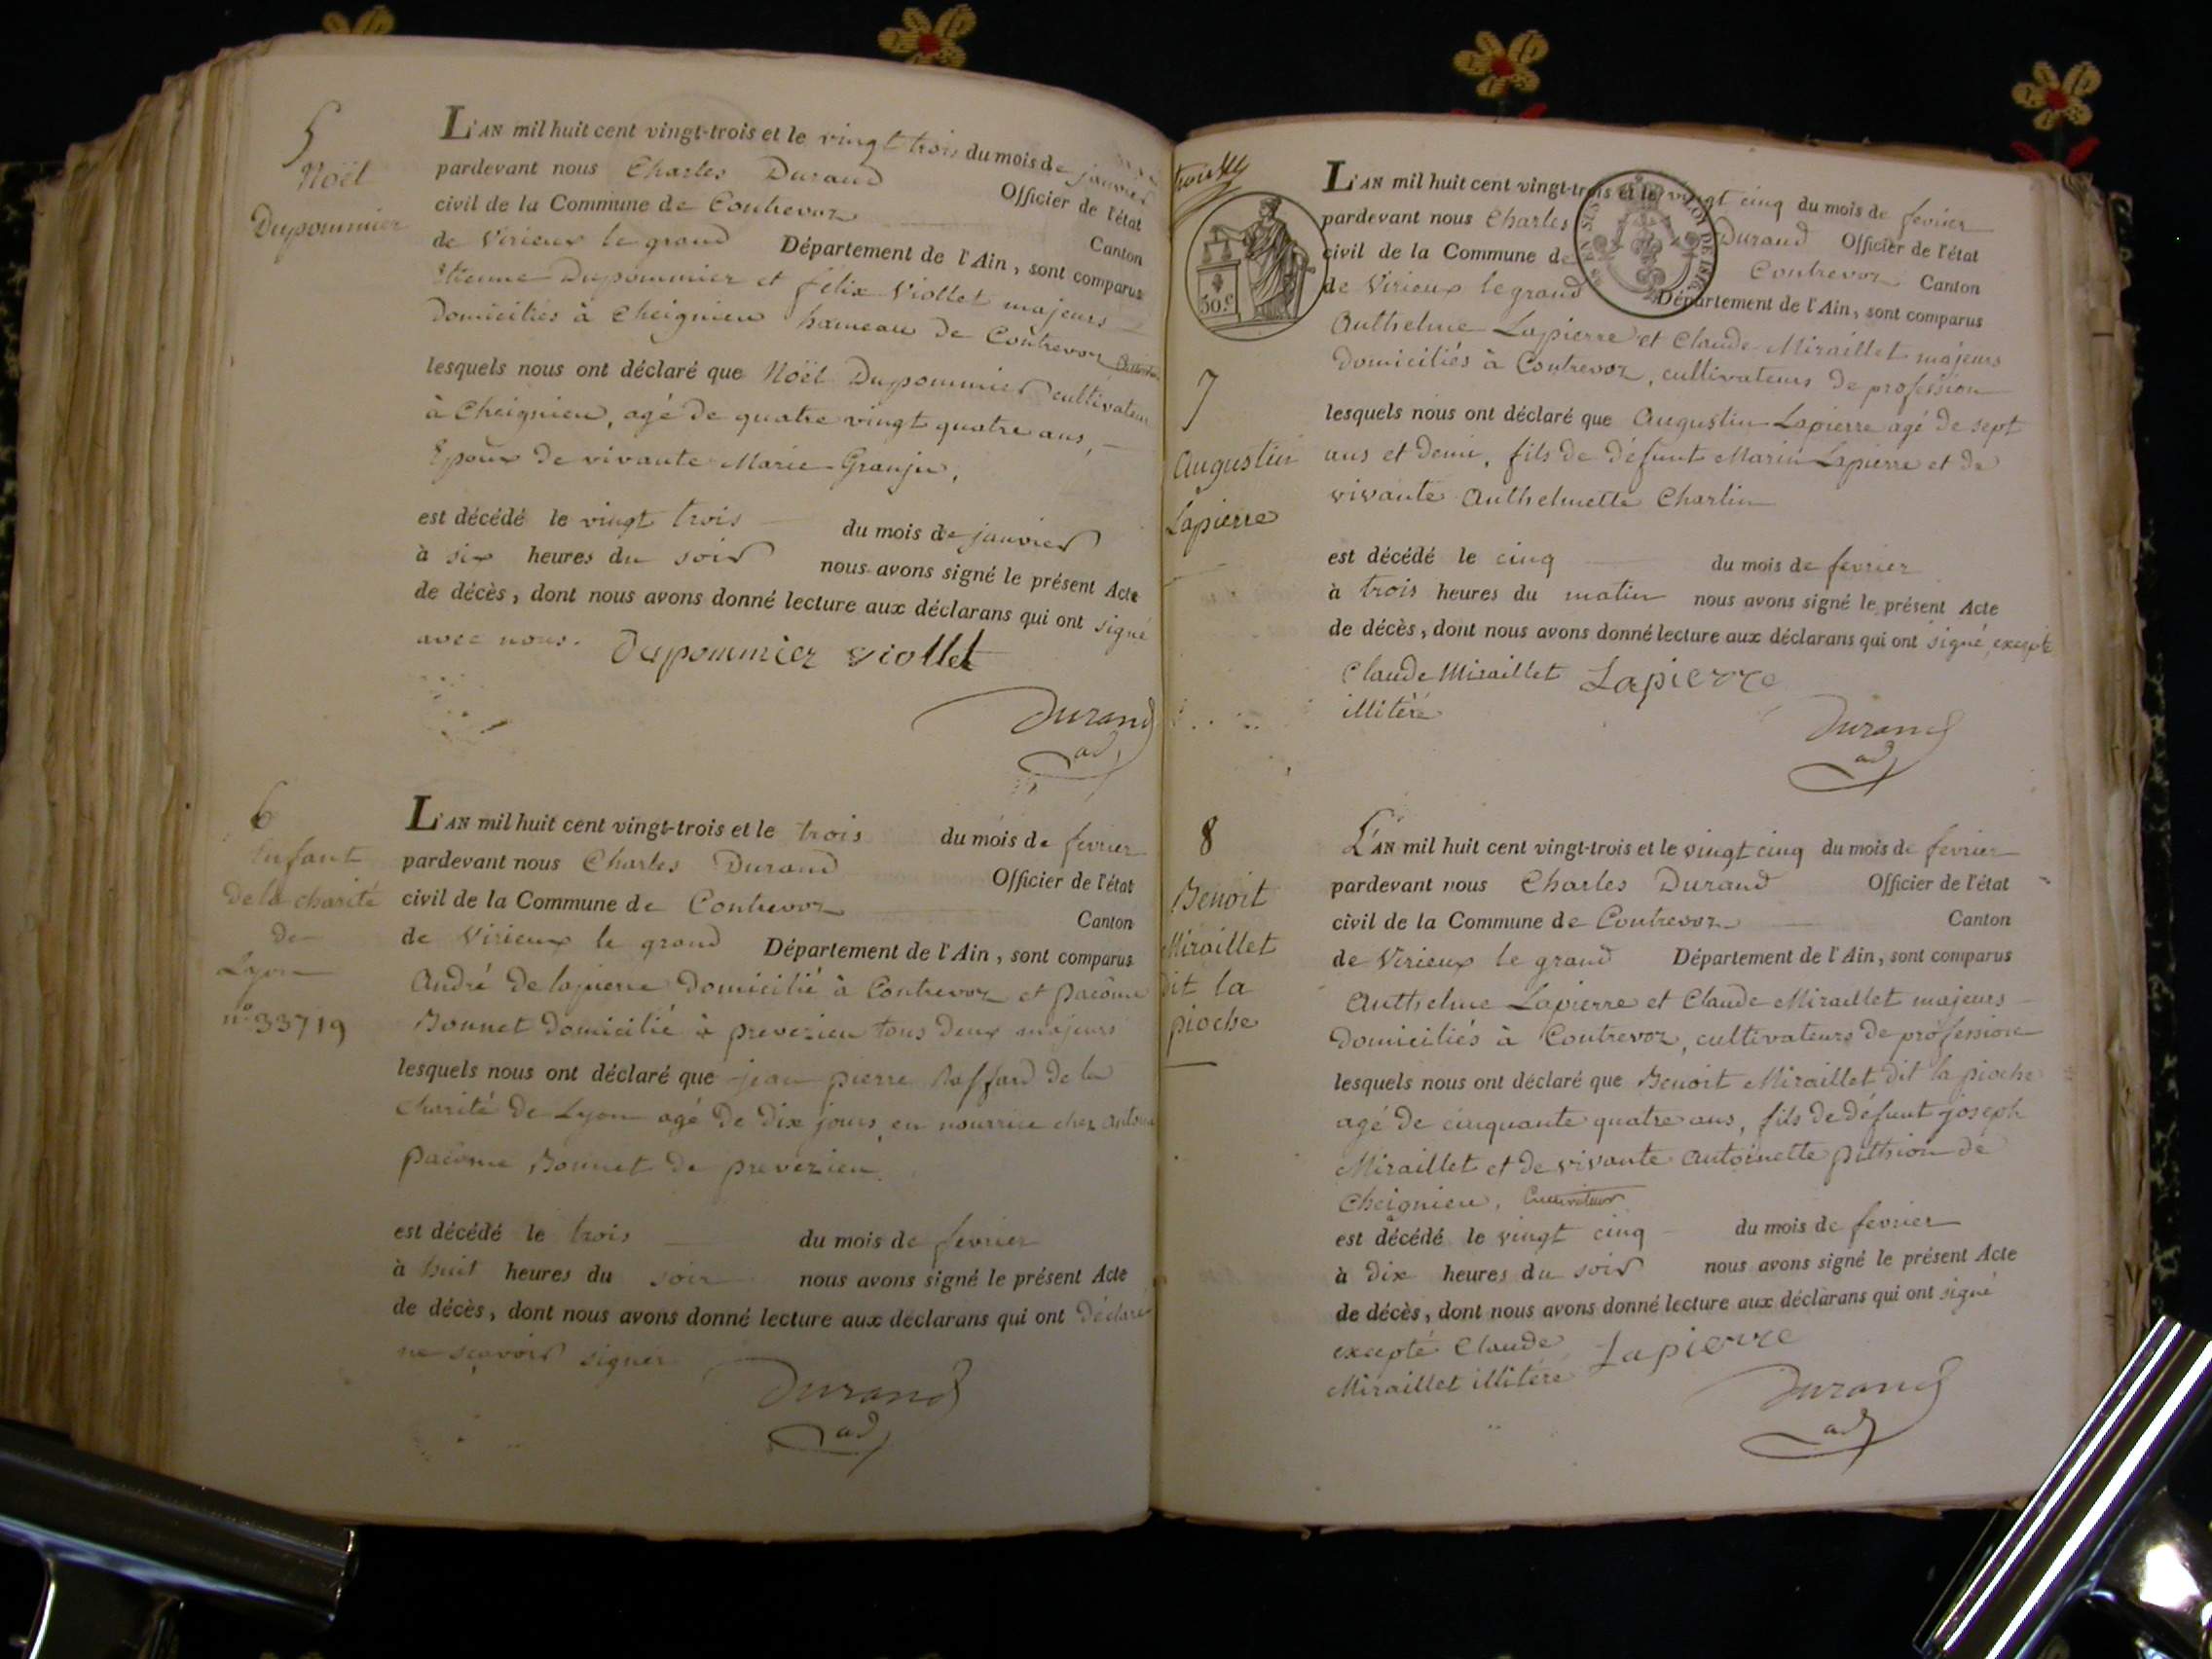 5
Noël
Dupommier
L'AN mil huit cent vingt-trois et le vingt trois du mois de janvier
pardevant nous Charles Durand Officier de l'état
civil de la Commune de Contrevoz Canton
de Virieux le grand Département de l'Ain, sont comparus
Etienne Dupommier et félix Viollet majeurs
domiciliés à Cheignieu hameau de Contrevoz
lesquels nous ont déclaré que Noël Dupommier cultivateur
à Cheignieu, agé de quatre vingt quatre ans,
Epoux de vivante Marie Granju,
est décédé le vingt trois du mois de janvier
à six heures du soir nous avons signé le présent Acte
de décès, dont nous avons donné lecture aux déclarans qui ont signé
avec nous. Dupommier viollet
Durand
ad
6
Enfant
de la charité
de
Lyon
n° 33719
L'AN mil huit cent vingt-trois et le trois du mois de fevrier
pardevant nous Charles Durand Officier de l'état
civil de la Commune de Contrevoz Canton
de Virieux le grand Département de l'Ain, sont comparus
André delapierre domicilié à Contrevoz et pacôme
Bonnet domicilié à prevezieu tous deux majeurs
lesquels nous ont déclaré que jean pierre de la
charité de Lyon agé de dix jours, en nourrice chez
pacôme Bonnet de prevezieu.
est décédé le trois du mois de fevrier
à huit heures du soir nous avons signé le présent Acte
de décès, dont nous avons donné lecture aux déclarans qui ont déclaré
ne sçavoir signer
Durand
ad
50.c
7
Augustin
Lapierre
L'AN mil huit cent vingt-trois et le vingt cinq du mois de fevrier
pardevant nous Charles Durand Officier de l'état
civil de la Commune de Contrevoz Canton
de Virieux le grand Département de l'Ain, sont comparus
Anthelme Lapierre et Claude Miraillet majeurs
domiciliés à Contrevoz, cultivateurs de profession
lesquels nous ont déclaré que Augustin Lapierre agé de sept
ans et demi, fils de défunt Marin Lapierre et de
vivante Anthelmette Charlin
est décédé le cinq du mois de fevrier
à trois heures du matin nous avons signé le présent Acte
de décès, dont nous avons donné lecture aux déclarans qui ont signé, excepté
Claude Miraillet Lapierre
illitéré
Durand
ad
8
Benoit
Miraillet
dit la
pioche
L'AN mil huit cent vingt-trois et le vingt cinq du mois de fevrier
pardevant nous Charles Durand Officier de l'état
civil de la Commune de Contrevoz Canton
de Virieux le grand Département de l'Ain, sont comparus
Anthelme Lapierre et Claude Miraillet majeurs
domiciliés à Contrevoz, cultivateurs de profession
lesquels nous ont déclaré que Benoit Miraillet dit la pioche
agé de cinquante quatre ans, fils de défunt joseph
Miraillet et de vivante Antoinette pithion de
Cheignieu, cultivateur
est décédé le vingt cinq du mois de fevrier
à dix heures du soir nous avons signé le présent Acte
de décès, dont nous avons donné lecture aux déclarans qui ont signé
excepté Claude Lapierre
Miraillet illitéré
Durand
ad